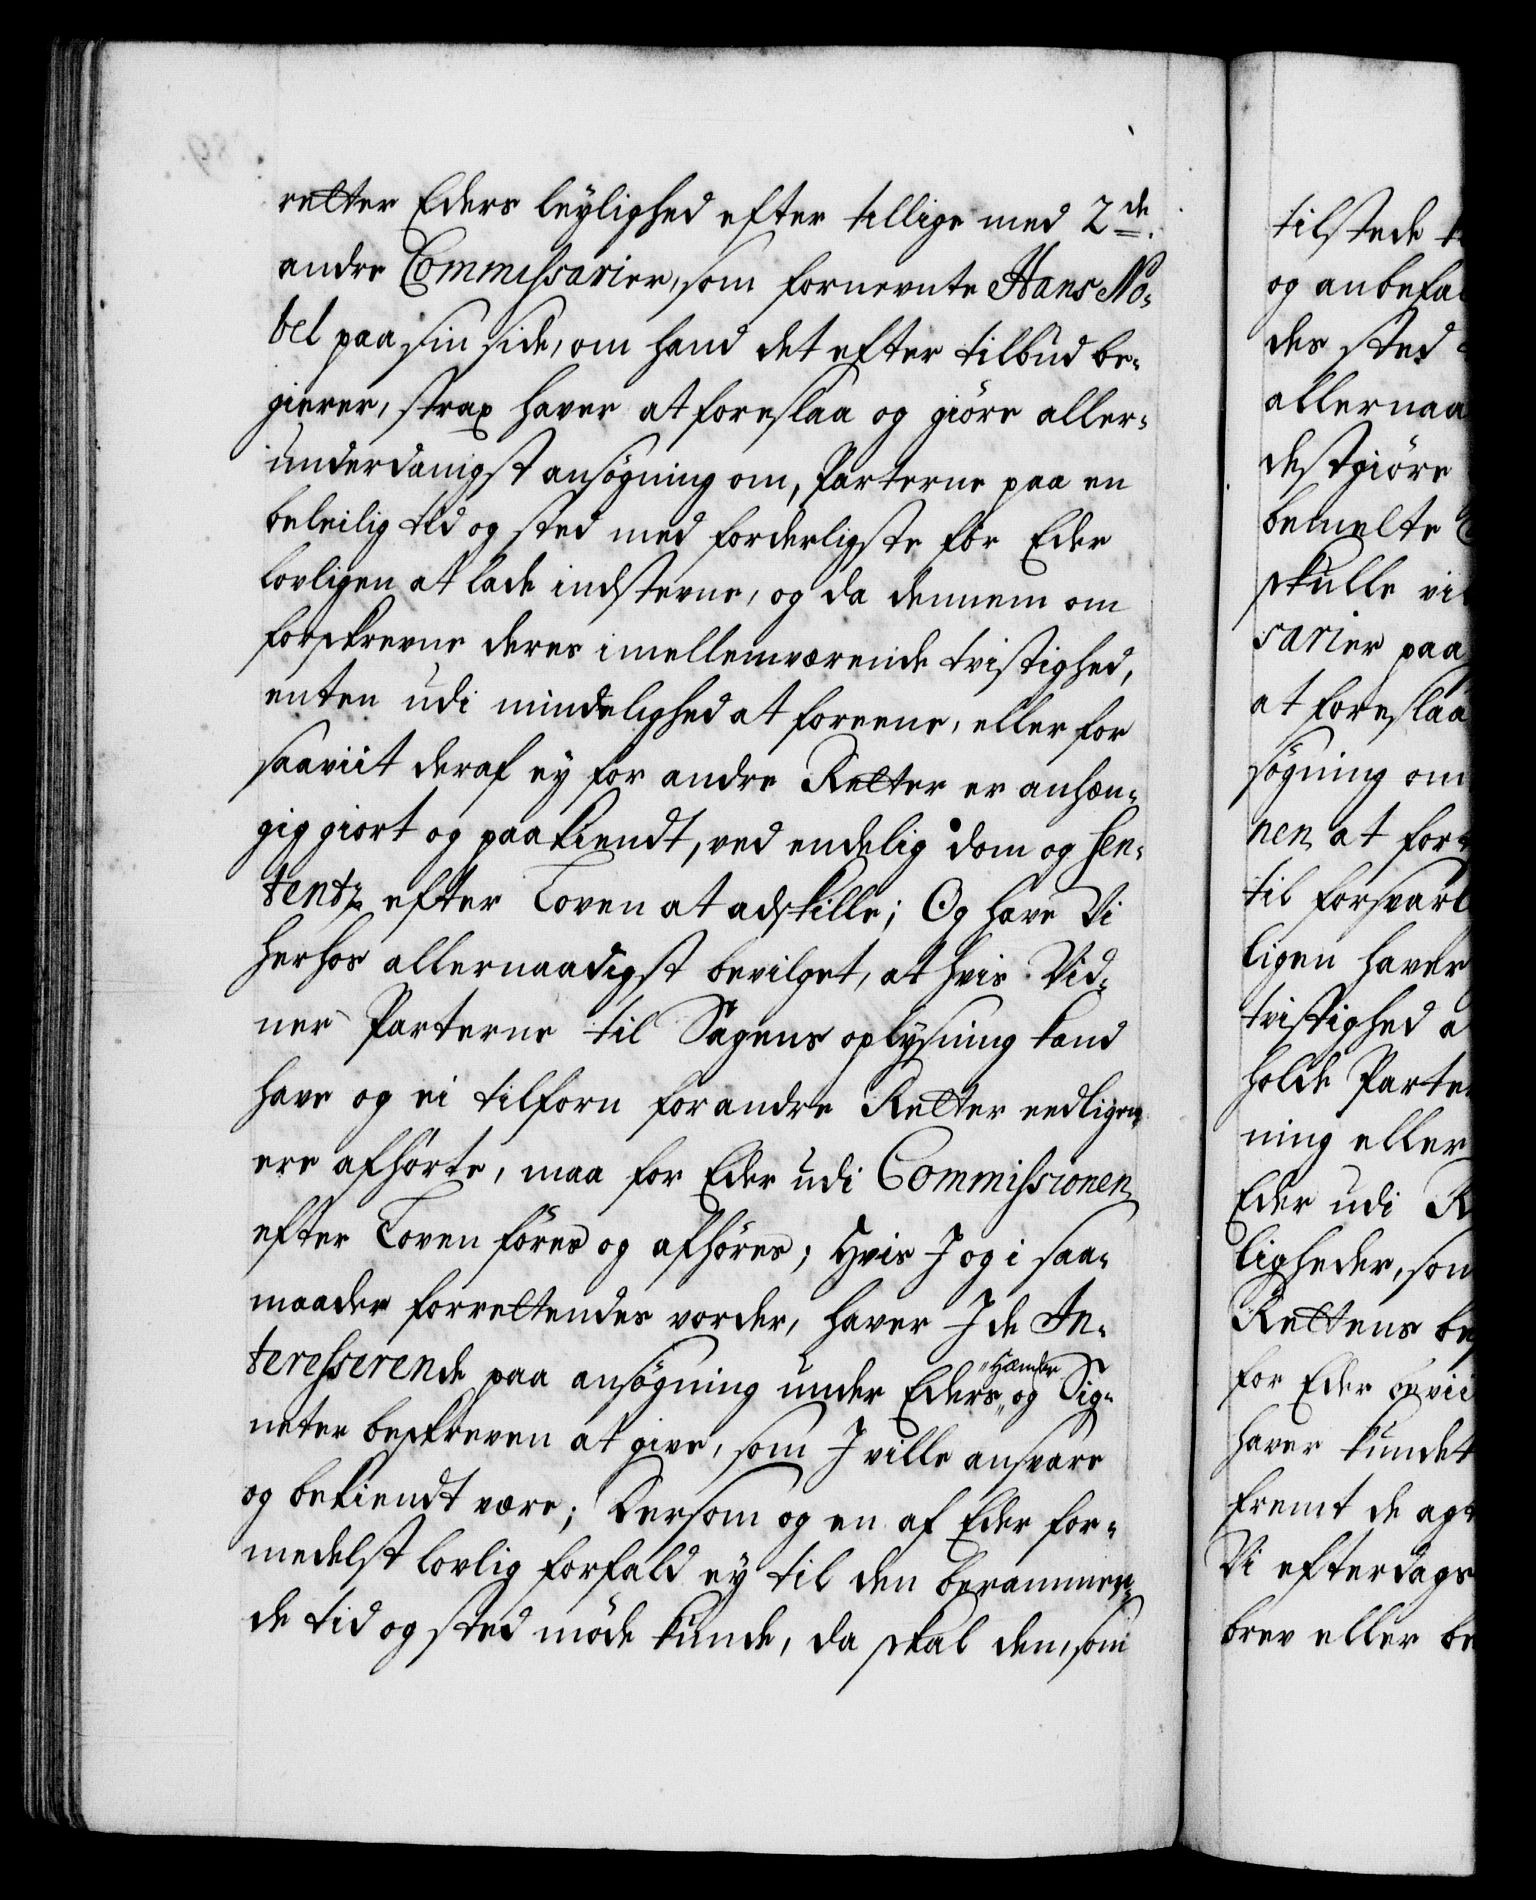 retter Eders leylighed efter tillige med 2de
andre Commissarier, som fornevnte Hans No-
bel paa sin side, om hand det efter tilbud be-
gierer, strax haver at foreslaa og giöre aller-
underdanigst ansøgning om, Parterne paa en
beleilig tid og sted med forderligste for Eder
lovligen at lade indstevne, og da dennem om
forskrevne deres imellemværende tvistighed,
enten udi mindelighed at foreene, eller for
saaviit deraf ey for andre Retter er anhæn-
gig giort og paakiendt, ved endelig dom og Sen-
tentz efter Loven at adskille; Og have Vi
herhos allernaadigst bevilget, at hvis Vid-
ner Parterne til Sagens oplysning kand
have og ei tilforn for andre Retter eedligen
ere afhörte, maa for Eder udi Commissionen
efter Loven föres og afhöres; Hvis I og i saa-
maader forrettendes vorder, haver I de In-
teresserende paa ansøgning under Eders Hænder og Sig-
neter beskreven at give, som I ville ansvare
og bekiendt være; Dersom og en af Eder for-
medelst lovlig forfald ey til den berammen-
de tid og sted möde kunde, da skal den, som
tilstede
og anbefa
des sted
allernaa
destgiöre
bemelte
skulle vi
sarier paa
at foreslaa
søgning om
nen at for
til forsvarl
ligen haver
tvistighed a
holde Parte
ning eller
Eder udi R
ligheder, som
Rettens be
for Eder
haver kundet
fremt de agt
Vi efterdags
brev eller be